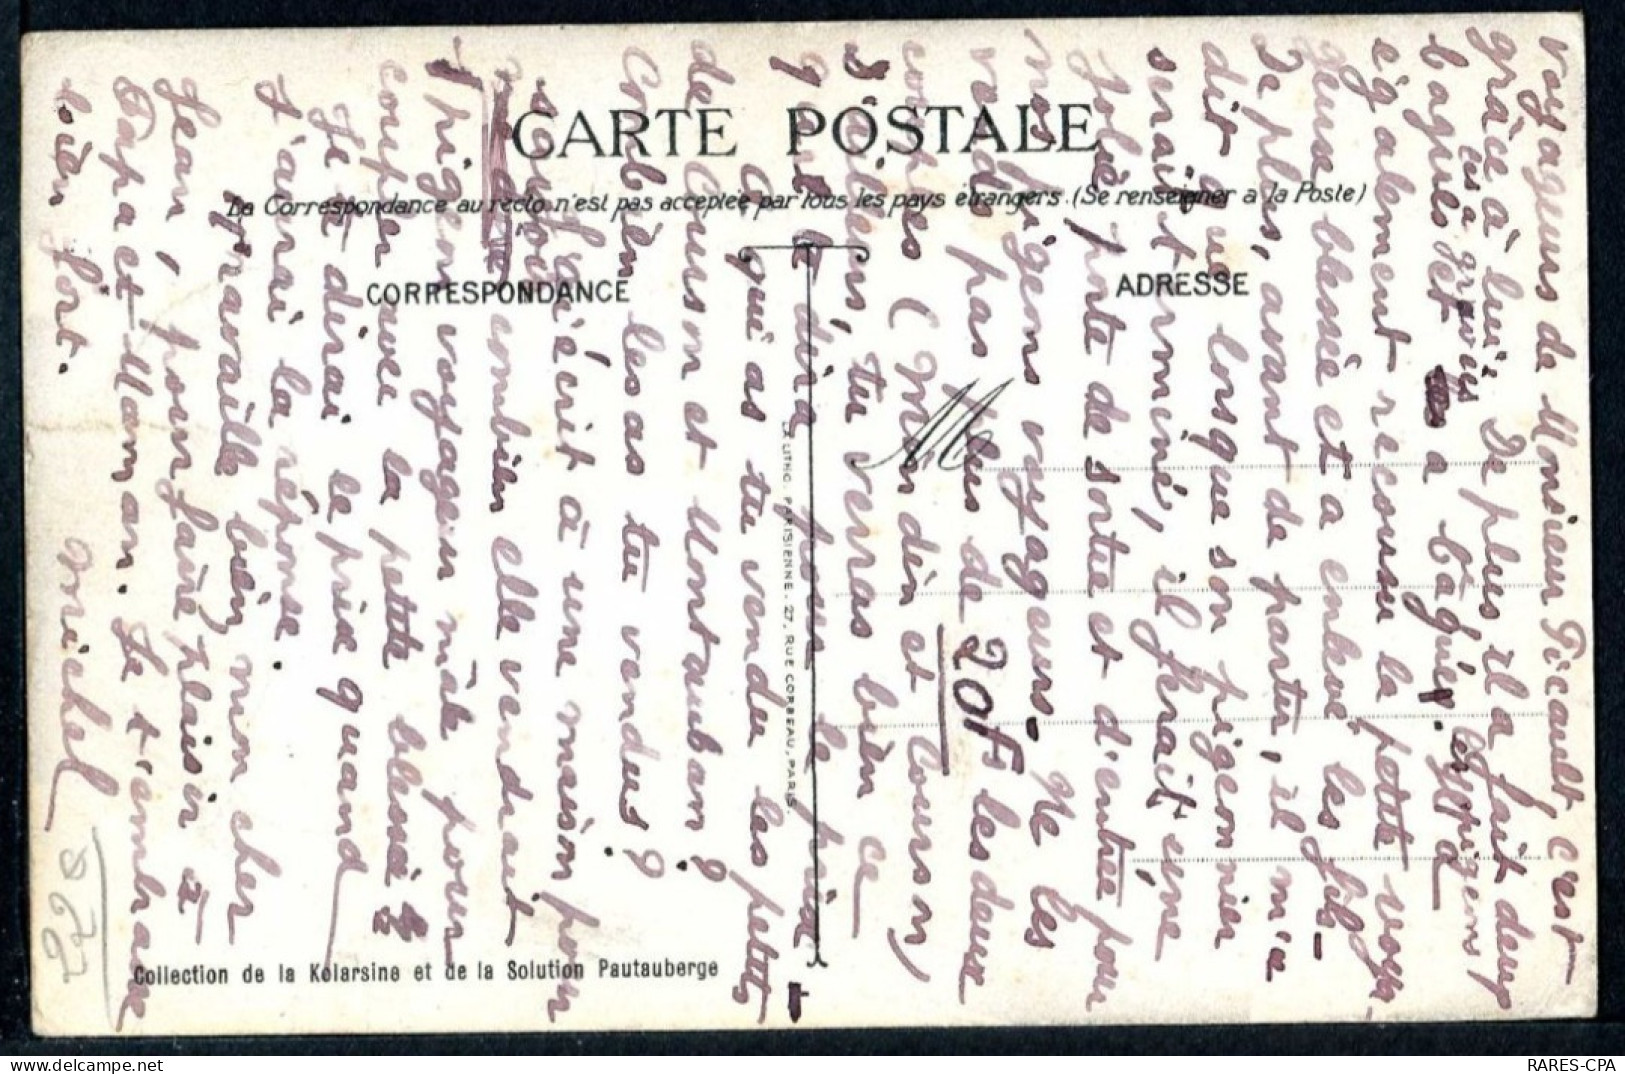 CARTE POSTALE
La Correspondance au recto n'est pas acceptée par tous les pays étrangers. (Se renseigner à la Poste)
CORRESPONDANCE
ADRESSE
M
LA LITHO. PARISIENNE. 27, RUE CORBEAU, PARIS.
Collection de la Kolarsine et de la Solution Pautauberge
voyageurs de Monsieur Picault. C'est
grâce à lui. De plus il a fait deux
bagues et a bagué les pigeons
ces a gravés
également recousu la petite voya-
geuse blessée et a enlevé les fils.
De plus, avant de partir, il m'a
dit que lorsque son pigeonnier
serait terminé, il ferait une
jolie porte de sortie et d'entrée pour
nos pigeons voyageurs. Ne les
vends pas plus de 20F les deux
couples (Mondin et Courson)
d'ailleurs, tu verras bien ce
qu'il te dira pour le prix
Ce qui as tu vendu les petits
de Courson et Montauban?
Combien les as tu vendus?
J'ai écrit à une maison pour
savoir combien elle vendrait
1 pigeon voyageur mâle pour
couper avec la petite blessée
Je te dirai le prix quand
j'aurai la réponse.
Travaille bien, mon cher
Jean, pour faire plaisir à
Papa et Maman. Je t'embrasse
bien fort.
Michel
228
RARES-CPA